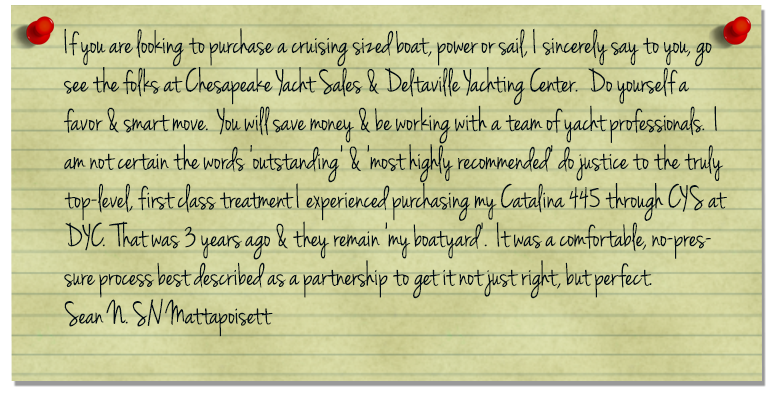 If you are looking to purchase a cruising sized boat, power or sail, I sincerely say to you, go
see the folks at Chesapeake Yacht Sales & Deltaville Yachting Center. Do yourself a
favor & smart move. You will save money & be working with a team of yacht professionals. I
am not certain the words 'outstanding' & 'most highly recommended' do justice to the truly
top-level, first class treatment I experienced purchasing my Catalina 445 through CYS at
DYC. That was 3 years ago & they remain 'my boatyard'. It was a comfortable, no-pres-
sure process best described as a partnership to get it not just right, but perfect.
Sean N. SN Mattapoisett